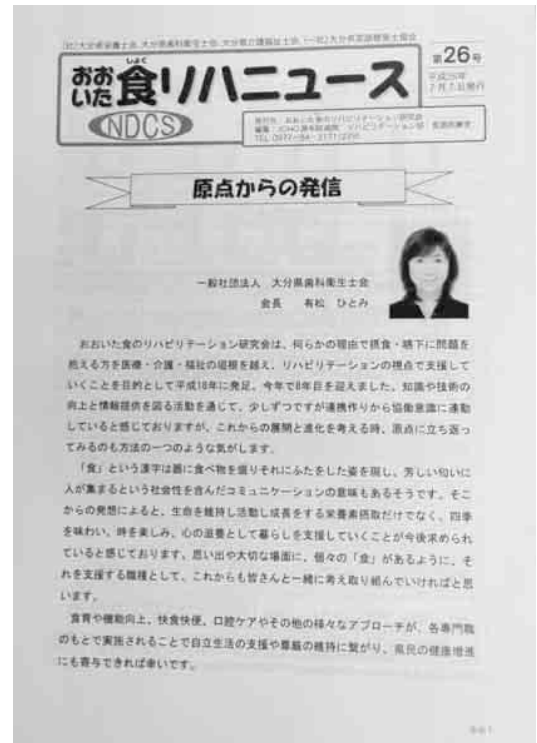 (社)大分県栄養士会、大分県歯科衛生士会、大分県介護福祉士会、(一社)大分県言語聴覚士協会
第26号
平成26年
7月7日発行
おおいた食リハニュース
しょく
NDCS
発行元：おおいた食のリハビリテーション研究会
TEL 0977-84-3171
原点からの発信
一般社団法人　大分県歯科衛生士会
会長　有松　ひとみ
おおいた食のリハビリテーション研究会は、何らかの理由で摂食・嚥下に問題を
抱える方を医療・介護・福祉の垣根を越え、リハビリテーションの視点で支援して
いくことを目的として平成18年に発足、今年で8年目を迎えました。知識や技術の
向上と情報提供を図る活動を通じて、少しずつですが連携作りから協働意識に連動
していると感じておりますが、これからの展開と進化を考える時、原点に立ち返っ
てみるのも方法の一つのような気がします。
「食」という漢字は器に食べ物を盛りそれにふたをした姿を現し、芳しい匂いに
人が集まるという社会性を含んだコミュニケーションの意味もあるそうです。そこ
からの発想によると、生命を維持し活動し成長をする栄養素摂取だけでなく、四季
を味わい、時を楽しみ、心の滋養として暮らしを支援していくことが今後求められ
ていると感じております。思い出や大切な場面に、個々の「食」があるように、そ
れを支援する職種として、これからも皆さんと一緒に考え取り組んでいければと思
います。
食育や機能向上、快食快便、口腔ケアやその他の様々なアプローチが、各専門職
のもとで実施されることで自立生活の支援や尊厳の維持に繋がり、県民の健康増進
にも寄与できれば幸いです。